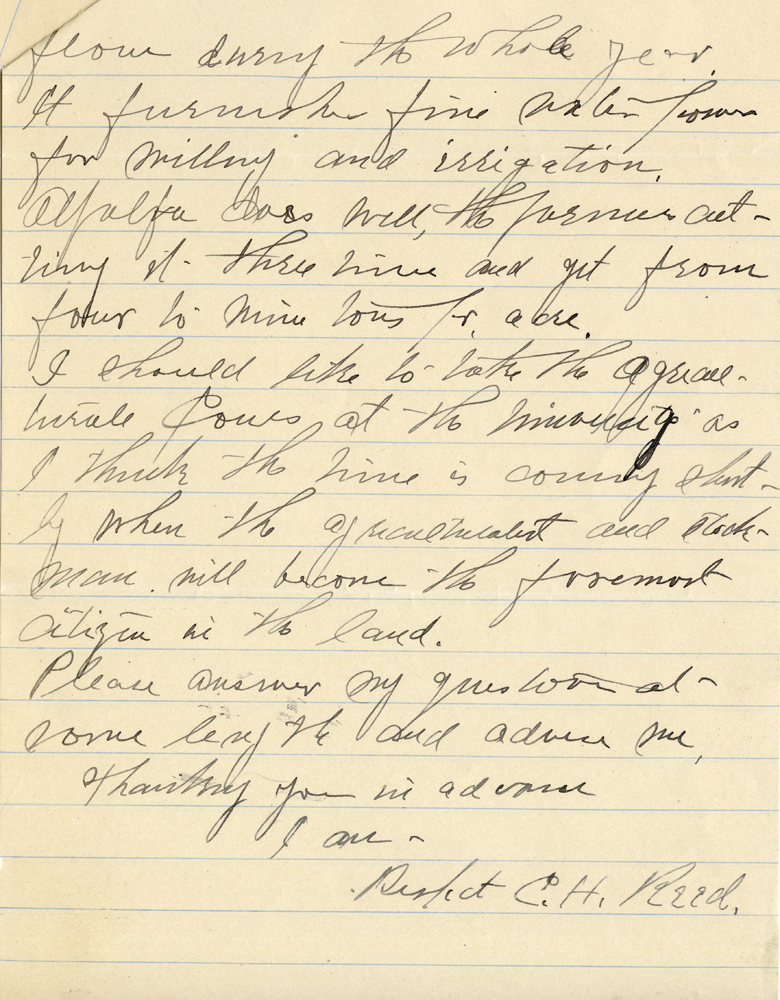 flow during the whole year.
It furnishes fine water power
for milling and irrigation.
Alfalfa does well, the farmers cut-
ting it three time and get from
four to nine tons pr. acre.
I should like to take the agricul-
turale Coures at the university as
I think the time is coming short-
ly when the agriculturalist and stock-
man will become the foremost
citizen in the land.
Please answer my question at
some length and advise me,
Thanking you in advance
I am -
Respect C. H. Reed.